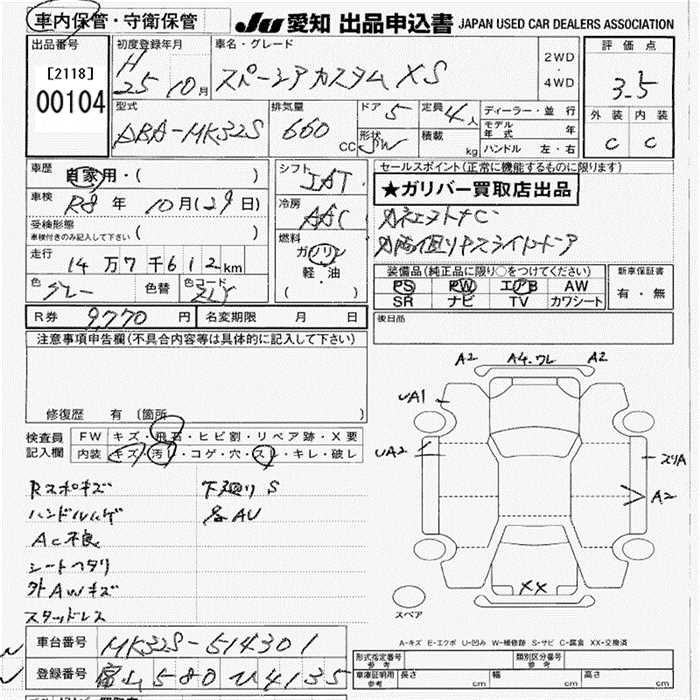 車内保管・守衛保管
JU 愛知 出品申込書 JAPAN USED CAR DEALERS ASSOCIATION
出品番号
[2118]
00104
初度登録年月
H
25 10月
車名・グレード
スペーシアカスタム XS
2WD
・
4WD
評価点
3.5
外装 内装
C C
型式
ABA-MK32S
排気量
660 CC
ドア 5
形状 SW
定員 4人
積載 kg
ディーラー・並行
モデル年式 年
ハンドル 左・右
車歴
自家用・( )
車検
R8年 10月(29日)
受検形態
車検付きのみ記入して下さい ( )
走行
14万7千612km
色 グレー 色替 色コード ZLV
シフト
IAT
冷房
AAC
燃料
ガソリン
軽・油
( )
セールスポイント(正常に機能するものに限ります)
★ガリバー買取店出品
装備品(純正品に限り○をつけてください)
PS PW エアB AW
SR ナビ TV カワシート
新車保証書
有・無
R券 9,770円 名変期限 月 日
後日品
注意事項申告欄(不具合内容等は具体的に記入して下さい)
修復歴 有 〔箇所
検査員
記入欄
FW キズ・飛石・ヒビ割・リペア跡・X要
内装 キズ・汚レ・コゲ・穴・スレ・キレ・破レ
Rスポキズ 下廻りS
ハンドルハゲ 各AU
AC不良
シートヘタリ
外AWキズ
スタッドレス
A2 A4.ワレ A2
UA1
UA2
スリA
A2
XX
スペア
A-キズ E-エクボ U-凹み W-補修跡 S-サビ C-腐食 XX-交換済
車台番号 MK32S-514301
登録番号 富山580ひ4135
形式指定番号
参考
類別区分番号
参考
車庫証明用
参考
長さ cm 幅 cm 高さ cm